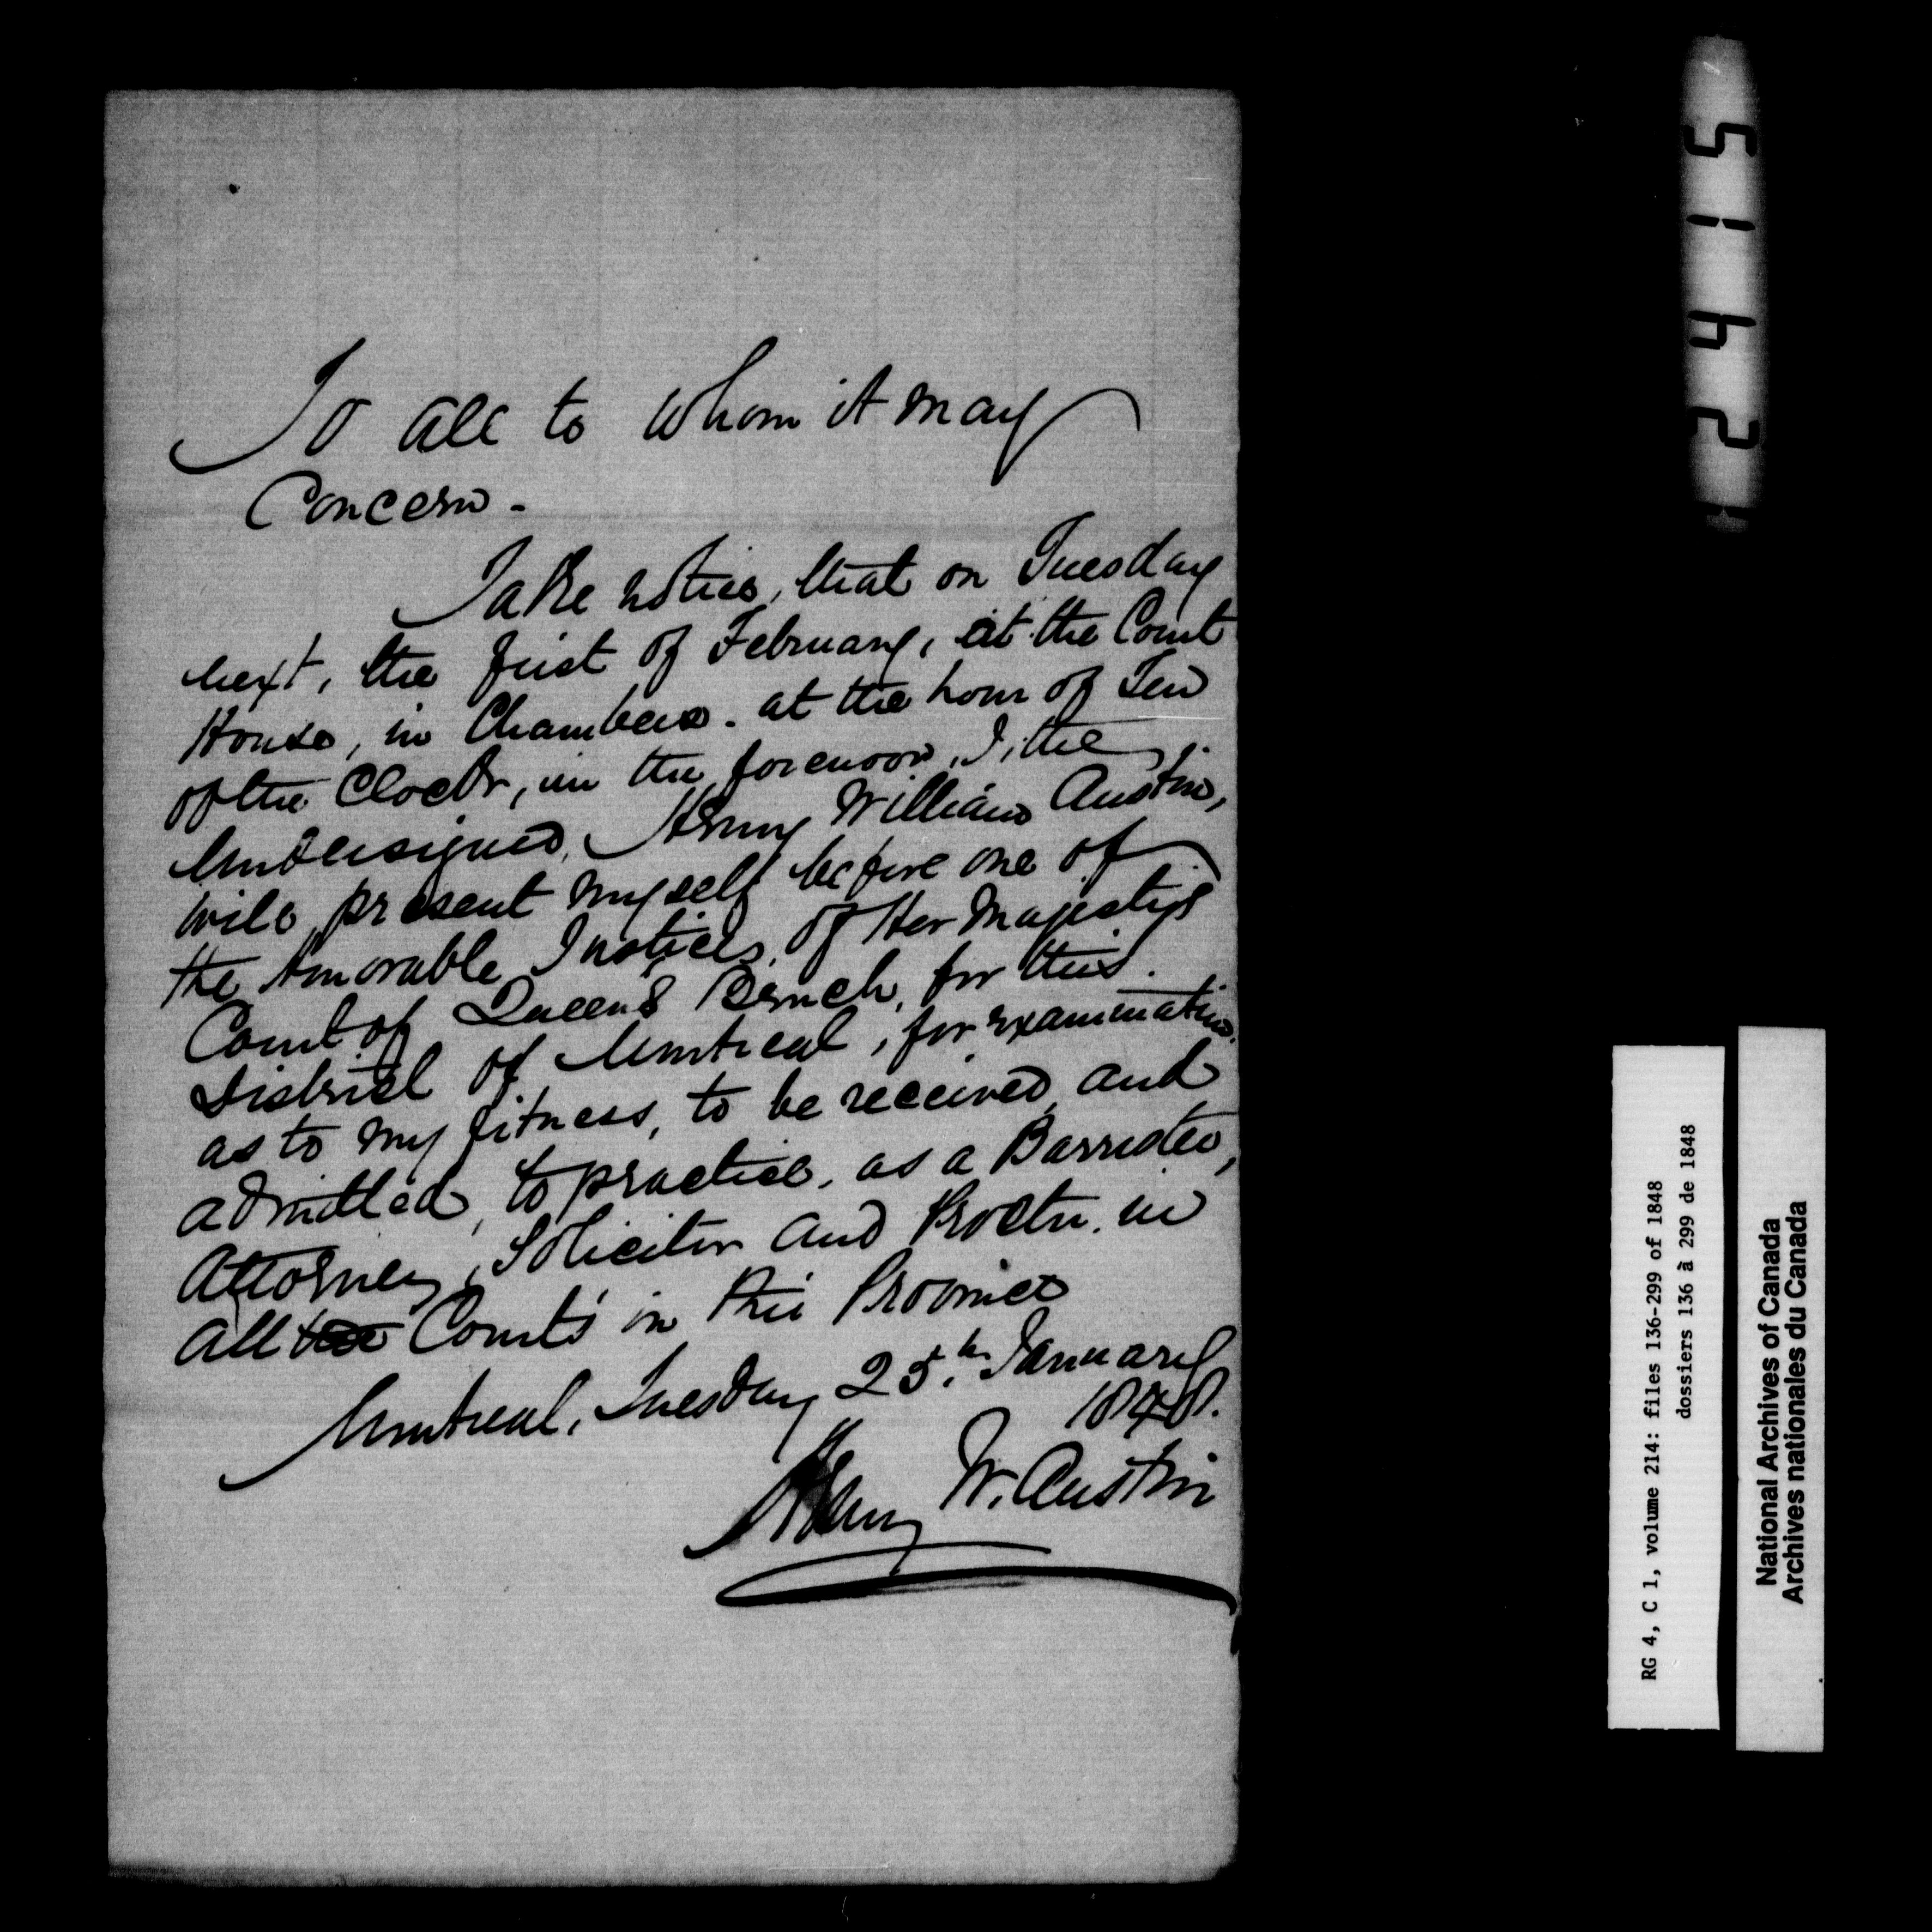 To all to whom it may
Concern -
Take notice, that on Tuesday
next, the first of February, at the Court
House, in Chambers. at the hour of Ten
of the Clock, in the forenoon, I, the
Undersigned, Henry William Austin,
will present myself before one of
the Honorable Justices, of Her Majesty's
Court of Queen's Bench, for this
District of Montreal, for examination
as to my fitness, to be received and
admitted, to practice, as a Barrister,
Attorney, Solicitor and Proctor. in
all the Courts in this Province
Montreal, Tuesday 25.th January
1848.
Henry W. Austin
5142
RG 4, C 1, volume 214: files 136-299 of 1848
dossiers 136 à 299 de 1848
National Archives of Canada
Archives nationales du Canada